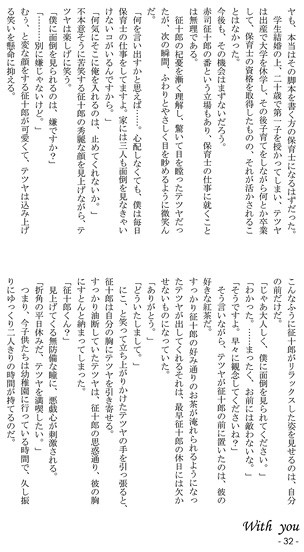 ヤも、本当はその脚本を書く方の保育士になるはずだった。
学生結婚の上、二十歳で第二子を授かってしまい、テツヤ
は出産で大学を休学し、その後子育てをしながら何とか卒業
して、保育士の資格を取得したものの、それが活かされるこ
とはなかった。
今後も、その機会はまずないだろう。
赤司征十郎の番という立場もあり、保育士の仕事に就くこと
は無理である。
征十郎の杞憂を漸く理解し、驚いて目を瞠ったテツヤだっ
たが、次の瞬間、ふわりとやさしく目を眇めるように微笑ん
だ。
「何を言い出すかと思えば……。心配しなくても、僕は毎日
保育士の仕事をしてますよ。家には三人も面倒を見なきゃい
けないコがいるんですから。」
「何気にそこに俺を入れるのは、止めてくれないか。」
不本意そうに苦笑する征十郎の秀麗な顔を見上げながら、テ
ツヤは楽しげに笑う。
「僕に面倒を見られるのは、嫌ですか？」
「………別に嫌じゃないけど。」
むぅ、と変な顔をする征十郎が可愛くて、テツヤは込み上げ
る笑いを懸命に抑える。
こんなふうに征十郎がリラックスした姿を見せるのは、自分
の前だけだ。
「じゃあ大人しく、僕に面倒を見られてください。」
「わかった。……まったく、お前には敵わないな。」
「そうですよ。早々に観念してくださいね？」
そう言いながら、テツヤが征十郎の前に置いたのは、彼の
好きな紅茶だ。
すっかり征十郎の好み通りのお茶が淹れられるようになっ
たテツヤが出してくれるそれは、最早征十郎の休日には欠か
せないものになっていた。
「ありがとう。」
「どういたしまして。」
にこ、と笑って立ち上がりかけたテツヤの手を引っ張ると、
征十郎は自分の胸にテツヤを引き寄せる。
すっかり油断していたテツヤは、征十郎の思惑通り、彼の胸
にすとんと納まってしまった。
「征十郎くん？」
見上げてくる無防備な瞳に、悪戯心が刺激される。
「折角の平日休みだ、テツヤを満喫したい。」
つまり、今子供たちは幼稚園に行っている時間で、久し振
りにゆっくり二人きりの時間が持てるのだ。
With you
- 32 -